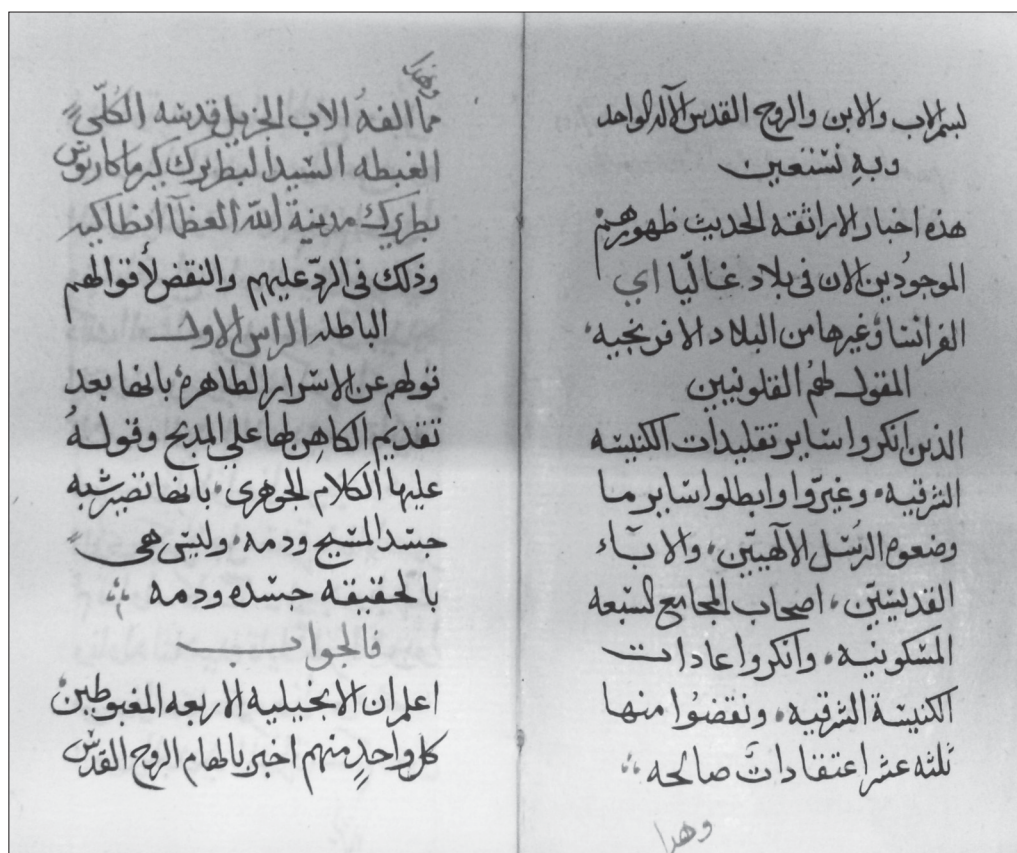 بسم الاب والابن والروح القدس الآله الواحد
وبهِ نستعين
هذه اخبار الاراتقه الحديث ظهورهم
الموجودين الان فى بلاد غاليّا اي
الفرانسا وغيرها من البلاد الافرنجيه
المقول لهمُ القلونيين
الذين انكروا ساير تقليدات الكنيسه
الشرقيه، وغيرّوا وابطلوا ساير ما
وضعوه الرُسل الآلهييّن، والابآء
القديسيّن، اصحاب المجامع السّبعه
المسكونيه، وانكروا عادات
الكنيسة الشرقيه، ونقضُوا منها
ثلثه عشر اعتقاداتَ صالحه
وهدا
وهدا
ما الفهُ الاب الجزيل قدسَه الكُلّيٍ
الغبطه السّيد البطريرك كير مكاريوس
بطريرك مدينة الله العظمآ انطاكيه
وذلك فى الردّ عليهم والنقض لأقوالهم
الباطله الراس الاول
قولهم عن الاسَرار الطاهرة بانها بعد
تقديم الكاهِن لها على المدبح وقولهُ
عليها الكلام الجوهرى، بانها تصير شبه
جسَد المسيح ودمه، وليسَ هى
بالحقيقه جسَده ودمه
فالجواب
اعلم ان الانجيليه الاربعه المغبوطين
كل واحدٍ منهم اخبر بالهام الروح القدس